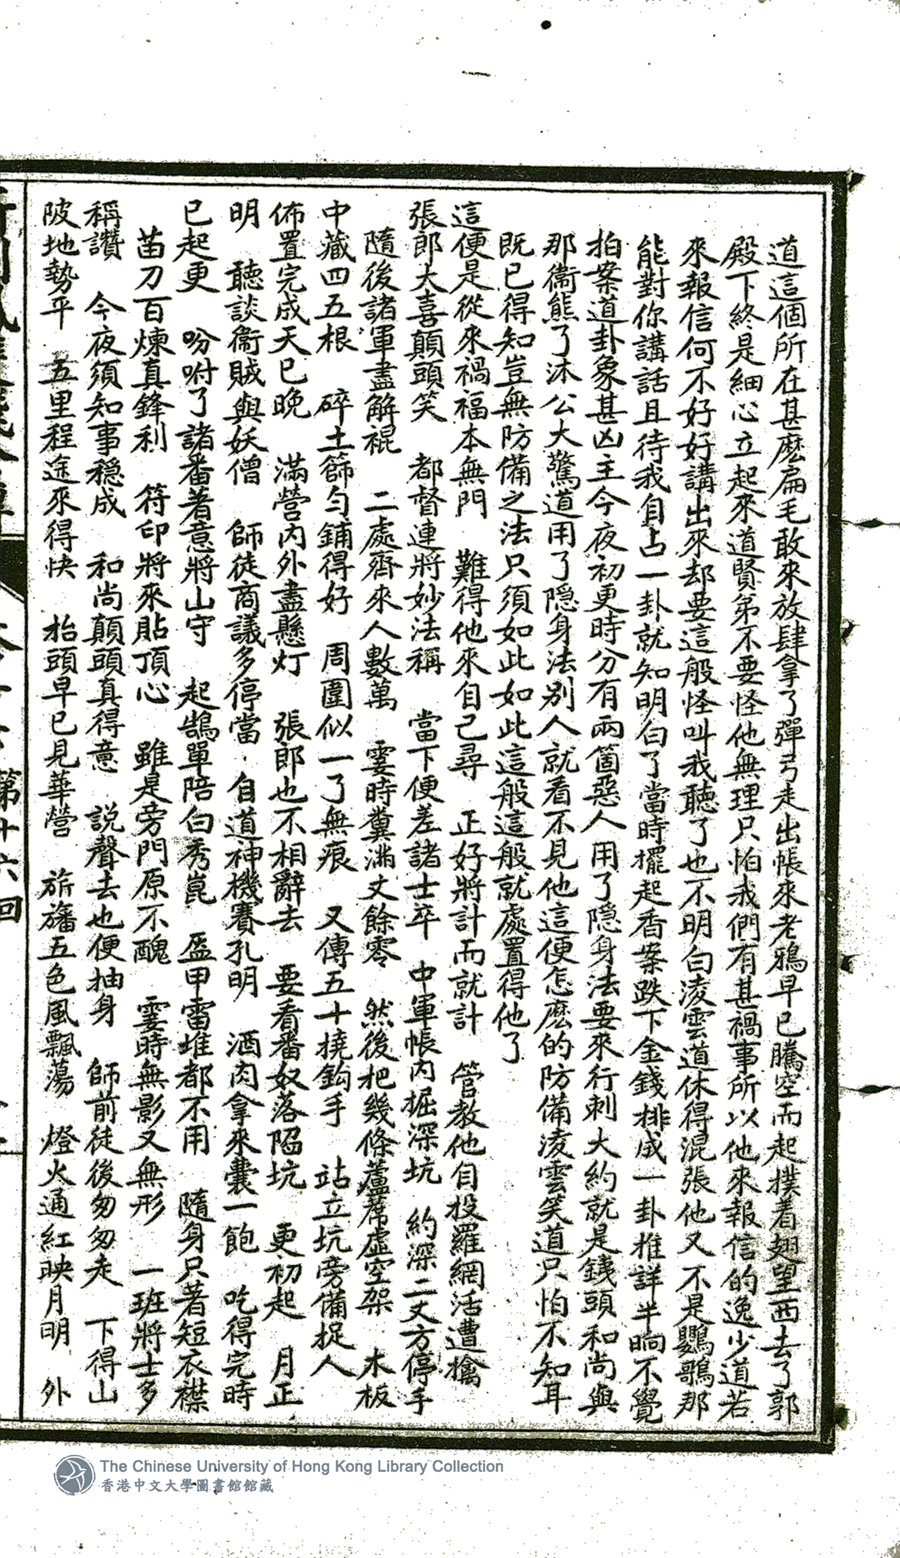 道這個所在甚麽扁毛敢來放肆拿了彈弓走出帳來老鴉早已騰空而起撲着翅望西去了郭
殿下終是細心立起來道賢弟不要怪他無理只怕我們有甚禍事所以他來報信的逸少道若
來報信何不好好講出來却要這般怪叫我聽了也不明白凌雲道休得混張他又不是鸚鵡那
能對你講話且待我自占一卦就知明白了當時擺起香案跌下金錢排成一卦推詳半晌不覺
拍案道卦象甚凶主今夜初更時分有兩箇惡人用了隐身法要來行刺大約就是錢頭和尚與
那衞熊了沐公大驚道用了隐身法別人就看不見他這便怎麽的防備凌雲笑道只怕不知耳
既已得知豈無防備之法只須如此如此這般這般就處置得他了
這便是從來禍福本無門 難得他來自己尋 正好將計而就計 管教他自投羅網活遭擒
張郎大喜顛頭笑 都督連將妙法稱 當下便差諸士卒 中軍帳內掘深坑 約深二丈方停手
隨後諸軍盡解裩 二處齊來人數萬 霎時糞滿丈餘零 然後把幾條蘆蓆虛空架 木板
中藏四五根 碎土篩勻鋪得好 周圍似一了無痕 又傳五十撓鈎手 站立坑旁備捉人
佈置完成天已晚 滿營內外盡懸灯 張郎也不相辭去 要看番奴落陷坑 更初起 月正
明 聽談衞賊與妖僧 師徒商議多停當 自道神機賽孔明 酒肉拿來囊一飽 吃得完時
已起更 吩咐了諸番著意將山守 起鵠單陪白秀崑 盔甲雷堆都不用 隨身只著短衣襟
苗刀百煉真鋒利 符印將來貼頂心 雖是旁門原不醜 霎時無影又無形 一班將士多
稱讚 今夜須知事穩成 和尚顛頭真得意 説聲去也便抽身 師前徒後匆匆走 下得山
陂地勢平 五里程途來得快 抬頭早已見華營 旂旛五色風飄蕩 燈火通紅映月明 外
第十六回
The Chinese University of Hong Kong Library Collection
香港中文大學圖書館館藏